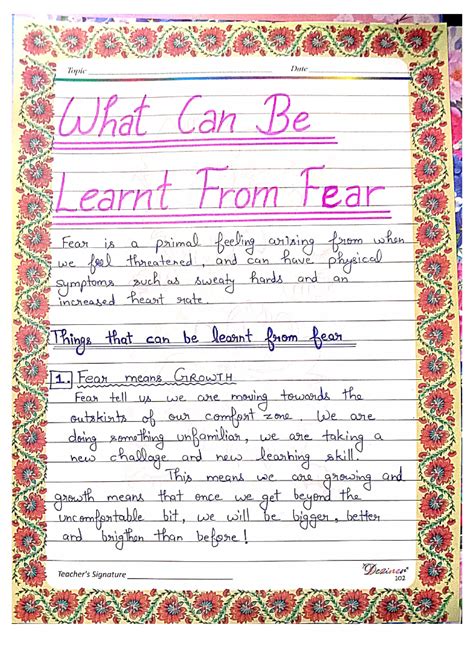 Topic Date
What Can Be
Learnt From Fear
Fear is a primal feeling arising from when
we feel threatened, and can have physical
symptoms such as sweaty hands and an
increased heart rate.
Things that can be learnt from fear
1. Fear means GROWTH
Fear tell us we are moving towards the
outskirts of our comfort zone. We are
doing something unfamiliar, we are taking a
new challage and new learning skill.
This means we are growing and
growth means that once we get beyond the
uncomfortable bit, we will be bigger, better
and brighten than before!
Teacher's Signature Deziner
102